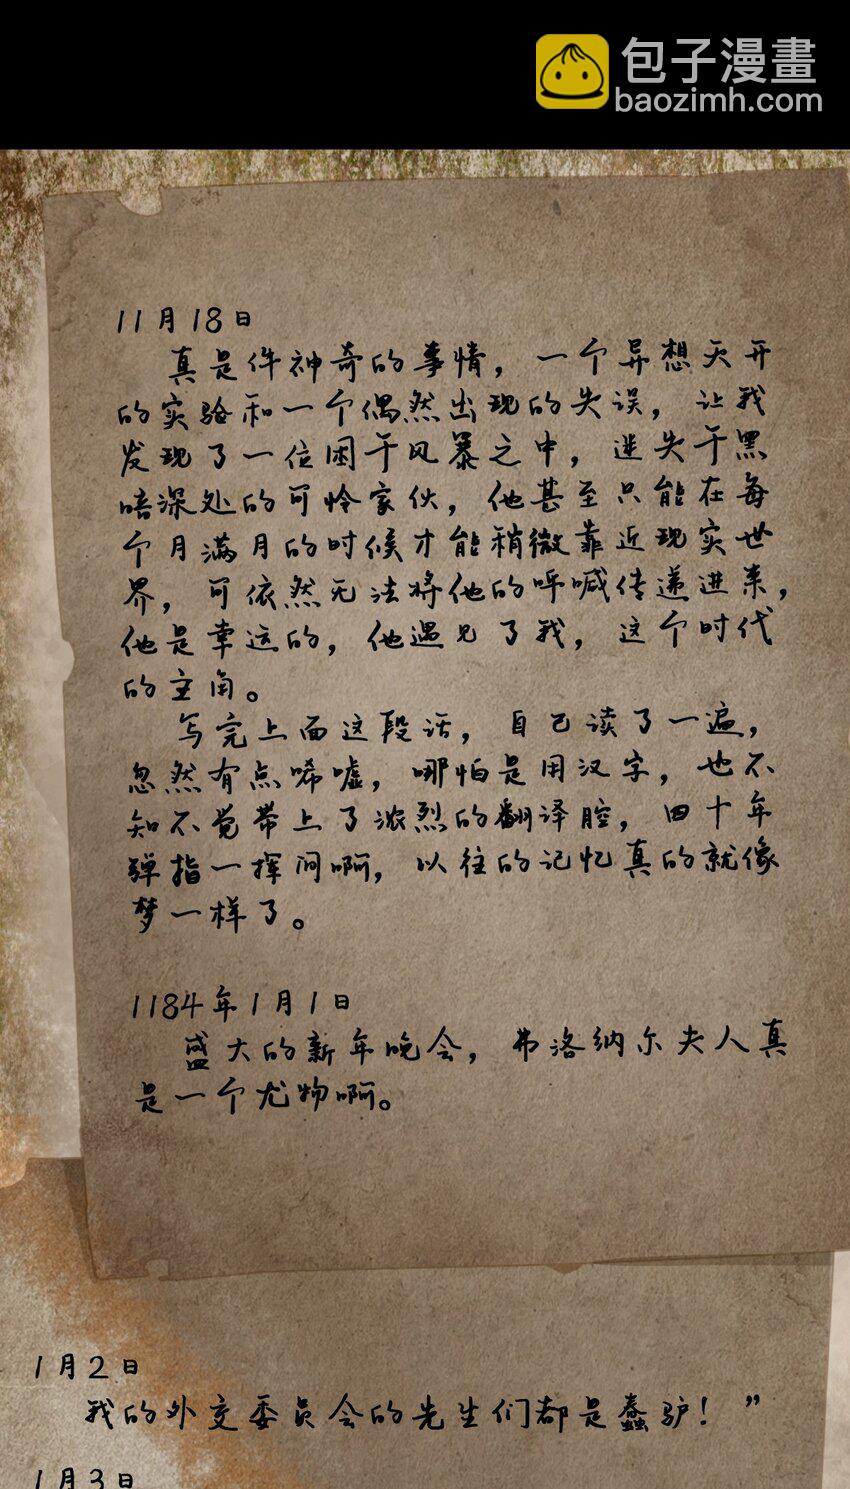 包子漫畫
baozimh.com
11月18日
真是件神奇的事情，一个异想天开
的实验和一个偶然出现的失误，让我
发现了一位困于风暴之中，迷失于黑
暗深处的可怜家伙，他甚至只能在每
个月满月的时候才能稍微靠近现实世
界，可依然无法将他的呼喊传递进来，
他是幸运的，他遇见了我，这个时代
的主角。
写完上面这段话，自己读了一遍，
忽然有点唏嘘，哪怕是用汉字，也不
知不觉带上了浓烈的翻译腔，四十年
弹指一挥间啊，以往的记忆真的就像
梦一样了。
1184年1月1日
盛大的新年晚会，弗洛纳尔夫人真
是一个尤物啊。
1月2日
我的外交委员会的先生们都是蠢驴！”
1月3日